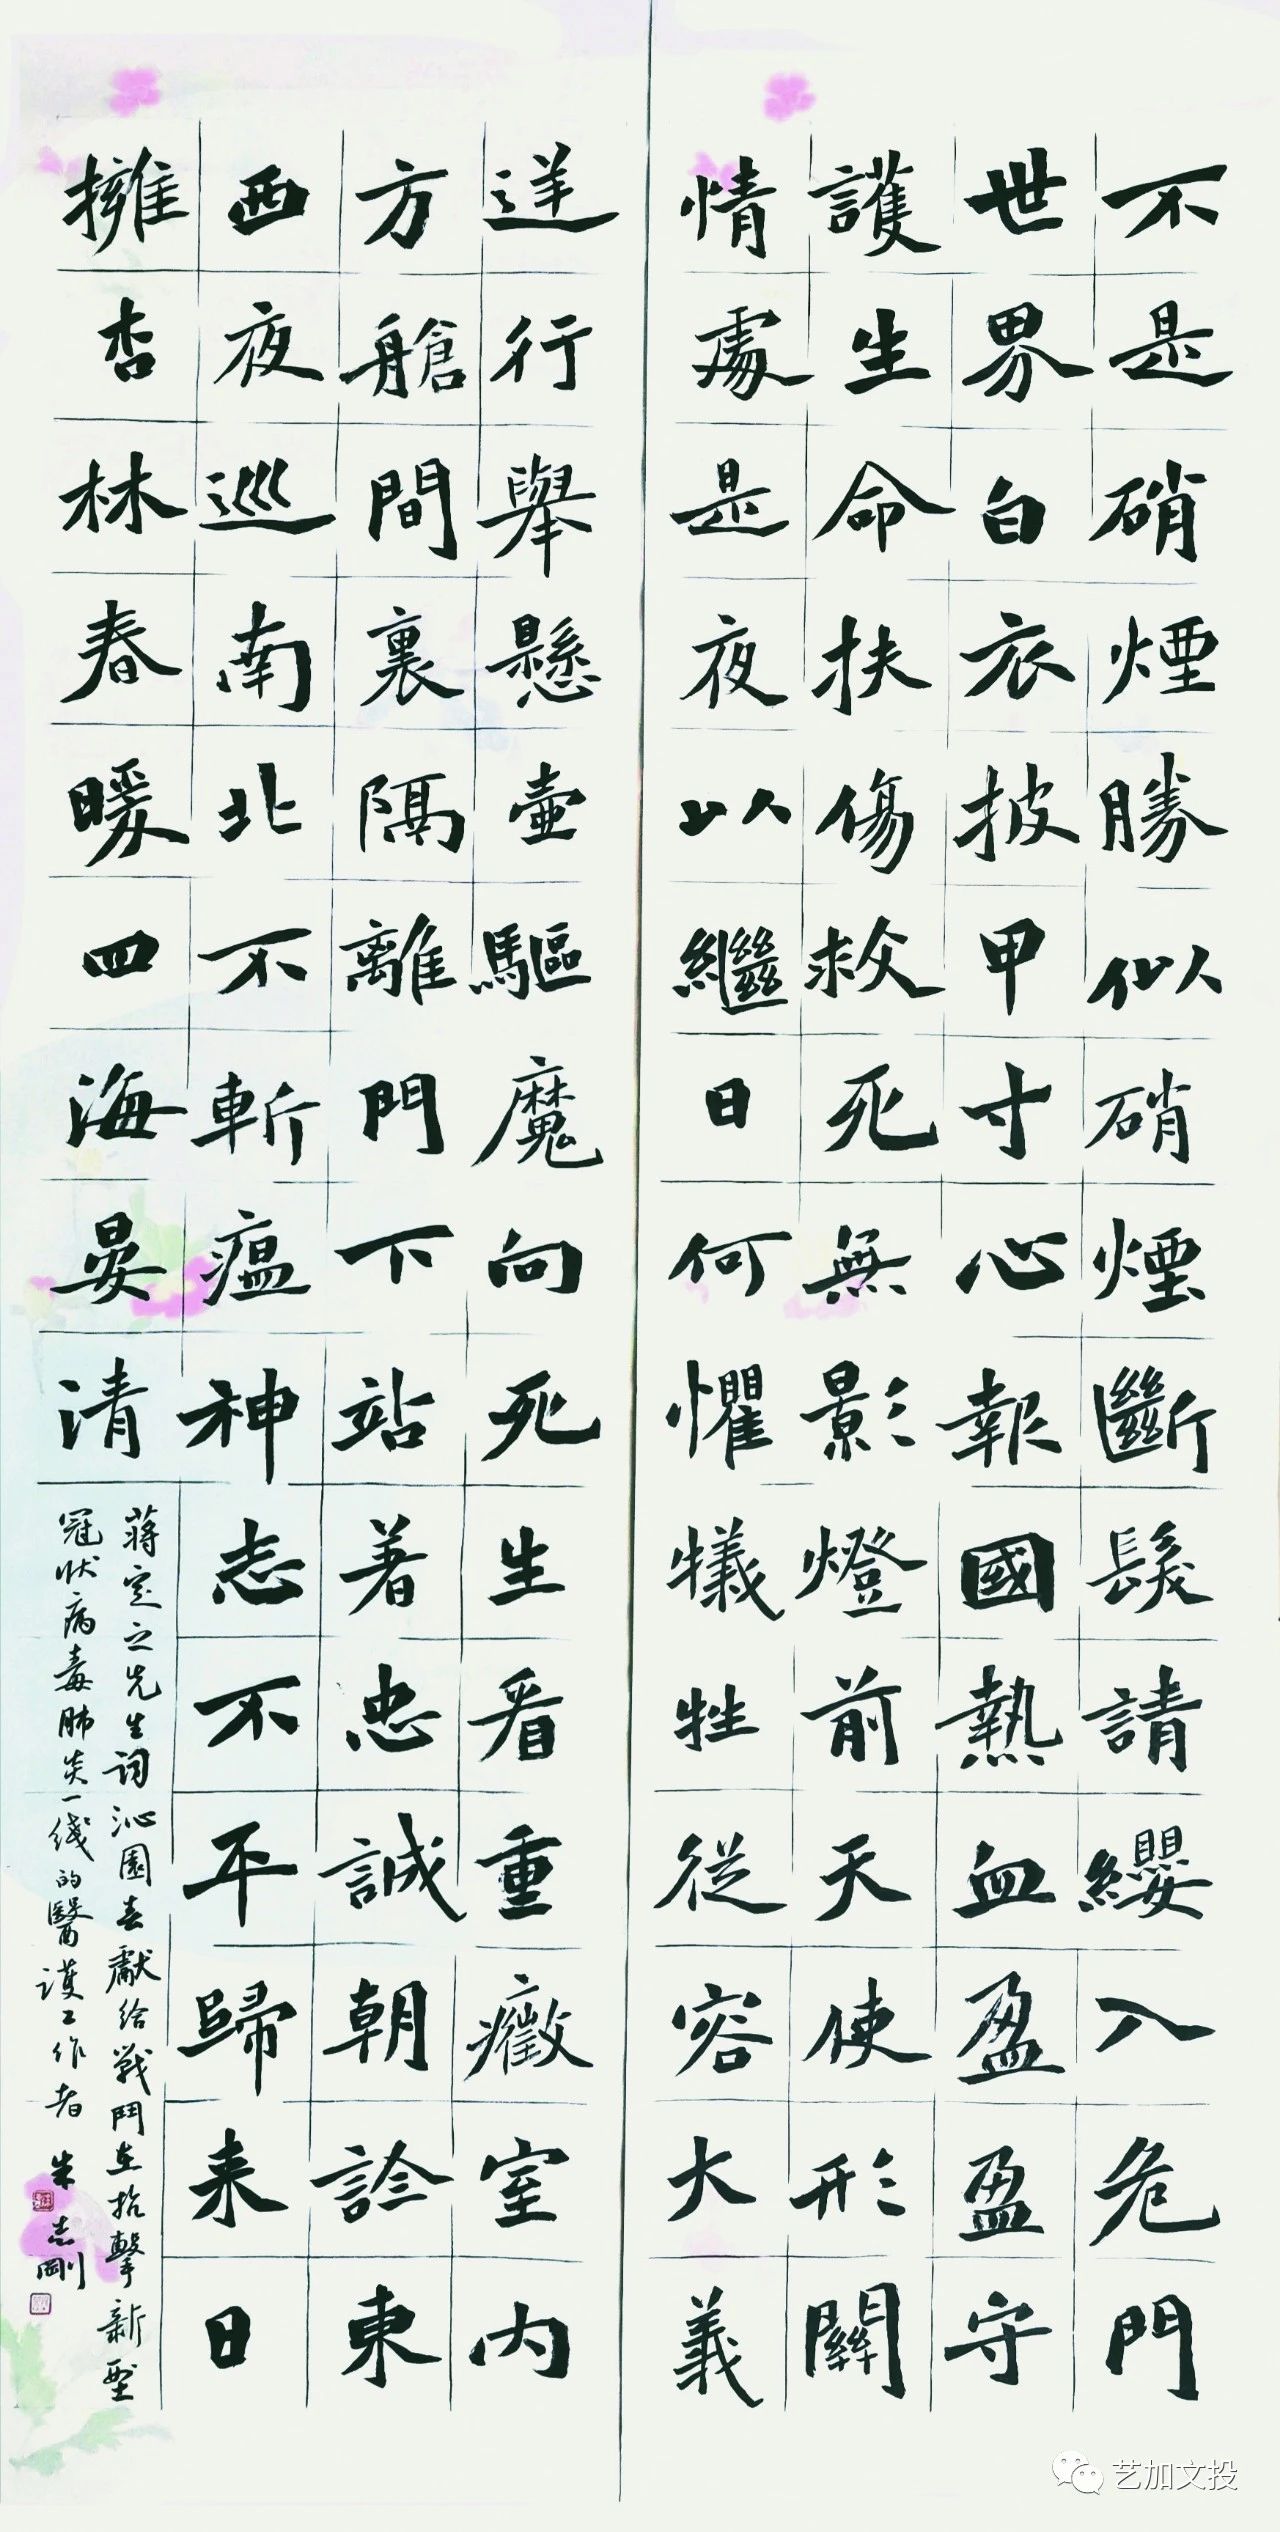 不是硝煙勝似硝煙斷髮請纓入危門
世界白衣披甲寸心報國熱血盈盈守
護生命扶傷救死無影燈前天使形關
情處是夜以繼日何懼犧牲從容大義
送行舉懸壺驅魔向死生看重癥室内
方艙間裏隔離門下站著忠誠朝診東
西夜巡南北不斬瘟神志不平歸来日
擁杏林春暖四海晏清
蔣定之先生詞沁園春獻給戰鬥在抗擊新型
冠狀病毒肺炎一綫的醫護工作者 朱志剛
艺加文投